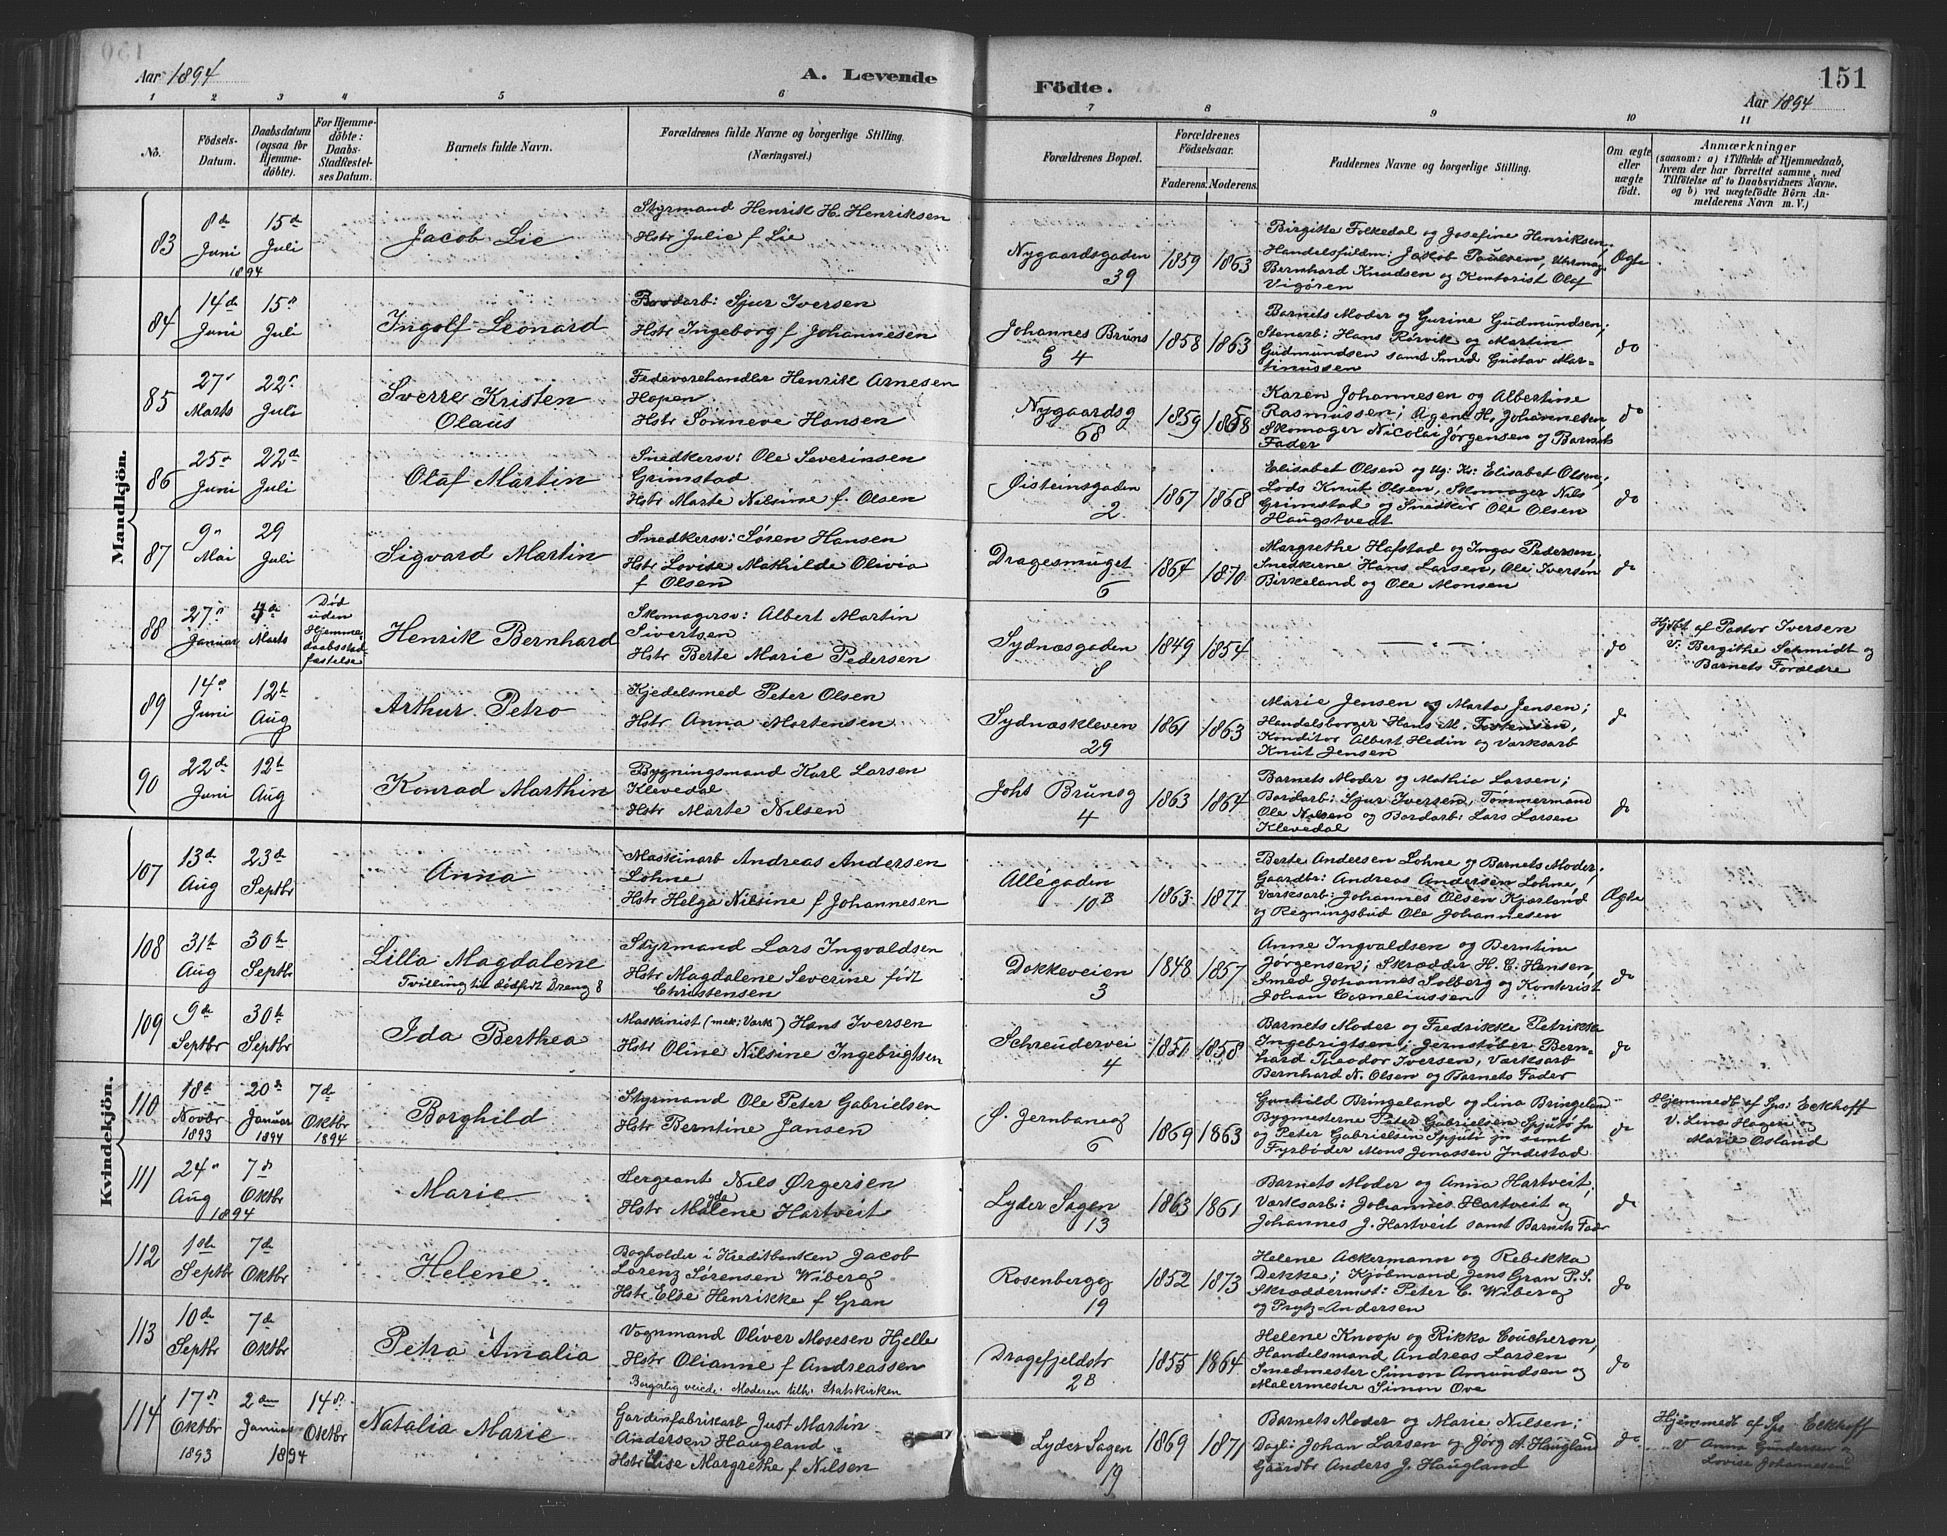 Aar 1894
A. Levende
1 2 3 4 5 6
No.
Födsels-Datum.
Daabsdatum (ogsaa for Hjemmedöbte).
For Hjemmedöbte: Daabs-Stadfæstelses Datum.
Barnets fulde Navn.
Forældrenes fulde Navne og borgerlige Stilling.
(Næringsvei.)
Födte.
151
Aar 1894
7 8 9 10 11
Forældrenes Bopæl.
Forældrenes Födselsaar.
Faderens. Moderens.
Faddernes Navne og borgerlige Stilling.
Om ægte eller uægte födt.
Anmærkninger
(saasom: a) i Tilfælde af Hjemmedaab,
hvem der har forrettet samme, med
Tilföielse af to Daabsvidners Navne,
og b) ved uægtefödte Börn An-
melderens Navn m. V.)
Mandkjön.
83
8de Juni 1894
15de Juli
Jacob Lie
Styrmand Henrik H. Henriksen
Hstr Julie f Lie
Nygaardsgaden
39
1859 1863
Birgitte Folkedal og Josefine Henriksen,
Handelsfuldm: Jakob Paulsen, Uhrmag
Bernhard Knudsen og Kontorist Olaf
Vigören
Ægte
84
14de Juni
15de Juli
Ingolf Leonard
Bordarb: Sjur Iversen
Hstr Ingeborg f Johannesen
Johannes Bruns
G 4
1858 1863
Barnets Moder og Gurine Gudmundsen;
Stenarb: Hans Rørvik og Martin
Gudmundsen samt Smed Gustav Mar-
tinussen
do
85
27de Marts
22de Juli
Sverre Kristen
Olaus
Fedevarehandler Henrik Arnesen
Hopen
Hstr Sønneve Hansen
Nygaardsg
68
1859 1858
Karen Johannesen og Albertine
Rasmussen; Agent H. Johannesen
Skomager Nicolai Jørgensen og Barnets
Fader
do
86
25de Juni
22de Juli
Olaf Martin
Snedkersv: Ole Severinsen
Grimstad
Hstr Marte Nilsine f. Olsen
Øisteinsgaden
2
1867 1868
Elisabet Olsen og Ug: K: Elisabet Olsen;
Lods Knut Olsen, Skomager Nils
Grimstad og Snedker Ole Olsen
Haugstvedt
do
87
9de Mai
29 Juli
Sigvard Martin
Snedkersv: Søren Hansen
Hstr Lovise Mathilde Olivia
f Olsen
Dragesmuget
6
1864 1870
Margrethe Hafstad og Inga Pedersen,
Snedkerne Hans Larsen, Ole Iversen
Birkeland og Ole Monsen
do
88
27de Januar
Marts
Død
uden
Hjemme-
daabsstad-
fæstelse
Henrik Bernhard
Skomagersv: Albert Martin
Sivertsen
Hstr Berte Marie Pedersen
Sydnæsgaden
8
1849 1854
do
Hjdøbt af Pastor Iversen
V: Bergithe Schmidt og
Barnets Forældre
89
14de Juni
12te Aug
Arthur Petro
Kjedelsmed Peter Olsen
Hstr Anna Mortensen
Sydnæskleven
29
1861 1863
Marie Jensen og Marta Jensen;
Handelsborger Hans M. Torstensen,
Konditor Albert Hedin og Værksarb
Knut Jensen
do
90
22de Juni
12te Aug
Konrad Marthin
Bygningsmand Karl Larsen
Klevedal
Hstr Marte Nilsen
Johs Brunsg
4
1863 1864
Barnets Moder og Mathia Larsen;
Bordarb: Sjur Iversen, Tømmermand
Ole Nilsen og Bordarb: Lars Larsen
Klevedal
do
Kvindekjön.
107
13de Aug
23de Septbr
Anna
Maskinarb Andreas Andersen
Lohne
Hstr Helga Nilsine f Johannesen
Allégaden
10B
1863 1877
Berte Andersen Lohne og Barnets Moder;
Gaardbr: Andreas Andersen Lohne,
Værksarb: Johannes Olsen Kjærland
og Regningsbud Ole Johannesen
Ægte
108
31te Aug
30te Septbr
Lilla Magdalene
Tvilling til dødfødt Dreng 8
Styrmand Lars Ingvaldsen
Hstr Magdalene Severine født
Christensen
Dokkeveien
3
1848 1857
Anne Ingvaldsen og Berntine
Jørgensen; Skrædder H. C. Hansen,
Smed Johannes Solberg og Kontorist
Johan Corneliussen
do
109
9de Septbr
30te Septbr
Ida Berthea
Maskinist (mek: Værk) Hans Iversen
Hstr Oline Nilsine Ingebrigtsen
Schreudervei
4
1851 1858
Barnets Moder og Fredrikke Petrikka
Ingebrigtsen; Jernstøber Bern-
hard Theodor Iversen, Værksarb
Bernhard N. Olsen og Barnets Fader
do
110
18de Novbr 1893
20de Januar 1894
7de Oktbr 1894
Borghild
Styrmand Ole Peter Gabrielsen
Hstr Berntine Jansen
Ø. Jernbaneg
6
1869 1863
Gunhild Bringeland og Lina Bringeland
Bygmesterne Peter Gabrielsen Spjutø sr
og Peter Gabrielsen Spjutø jn samt
Fyrbøder Mons Jonassen Indestad
do
Hjemmedt af Sps: Eckhoff
V. Lina Hagen og
Marie Østland
111
24de Aug 1894
7de Oktbr
Marie
Sergeant Nils Ørgersen
Hstr Malene Hartveit
Lyder Sagen
13
1863 1861
Barnets Moder og Anna Hartveit;
Værksarb: Johannes Hartveit og
Johannes J. Hartveit samt Barnets Fader
do
112
1ste Septbr
7de Oktbr
Helene
Bogholder i Kreditbanken Jacob
Lorenz Sørensen Wiberg
Hstr Else Henrikke f Gran
Rosenbergg
19
1852 1873
Helene Ackermann og Rebekka
Dekke; Kjøbmand Jens Gran P.S.
Skræddermst: Peter C. Wiberg
og Prytz-Andersen
do
113
10de Septbr
7de Oktbr
Petra Amalia
Vognmand Oliver Mosesen Hjelle
Hstr Olianne f Andreassen
Borgerlig viede. Moderen tilh: Statskirken
Dragefjeldstr
2B
1855 1864
Helene Knoop og Rikka Coucheron,
Handelsmand Andreas Larsen
Smedmester Simon Amundsen og
Malermester Simon Ove
do
114
17de Oktbr 1893
2den Januar 1894
14de Oktbr
Natalia Marie
Gardinfabrikarb Just Martin
Andersen Haugland
Hstr Elise Margrethe f Nilsen
Lyder Sagen
19
1869 1871
Barnets Moder og Marie Nilsen;
Dagl: Johan Larsen og Jørg A. Haugland
Gaardbr Anders J. Haugland
do
Hjemmedt af Sps Eckhoff
V Anna Gundersen og
Lovise Johannesen